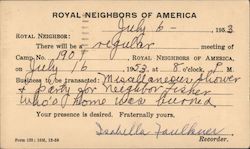 ROYAL NEIGHBORS OF AMERICA
July 6- 1953
ROYAL NEIGHBOR:
There will be a regular meeting of
Camp No. 1909
on July 16 1953 at 8 o'clock, P. M.
Business to be transacted: Miscellaneous Shower
& party for Neighbor Fisher
who's home was burned
Your presence is desired. Fraternally yours,
Isabella Faulkner
Recorder.